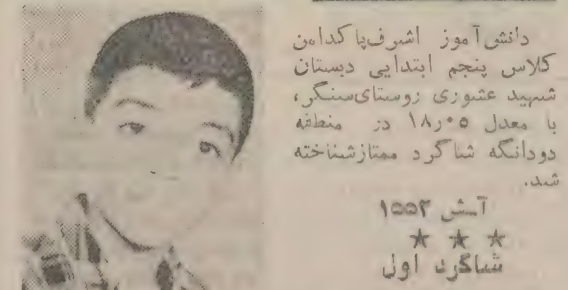 دانش آموز اشرف پاکدامن
کلاس پنجم ابتدایی دبستان
شهید عشوری روستای سنگر،
با معدل ۱۸٫۰۵ در منطقه
دودانگه شاگرد ممتاز شناخته
شد.
آ ـ ش ۱۵۵۲
★ ★ ★
شاگرد اول